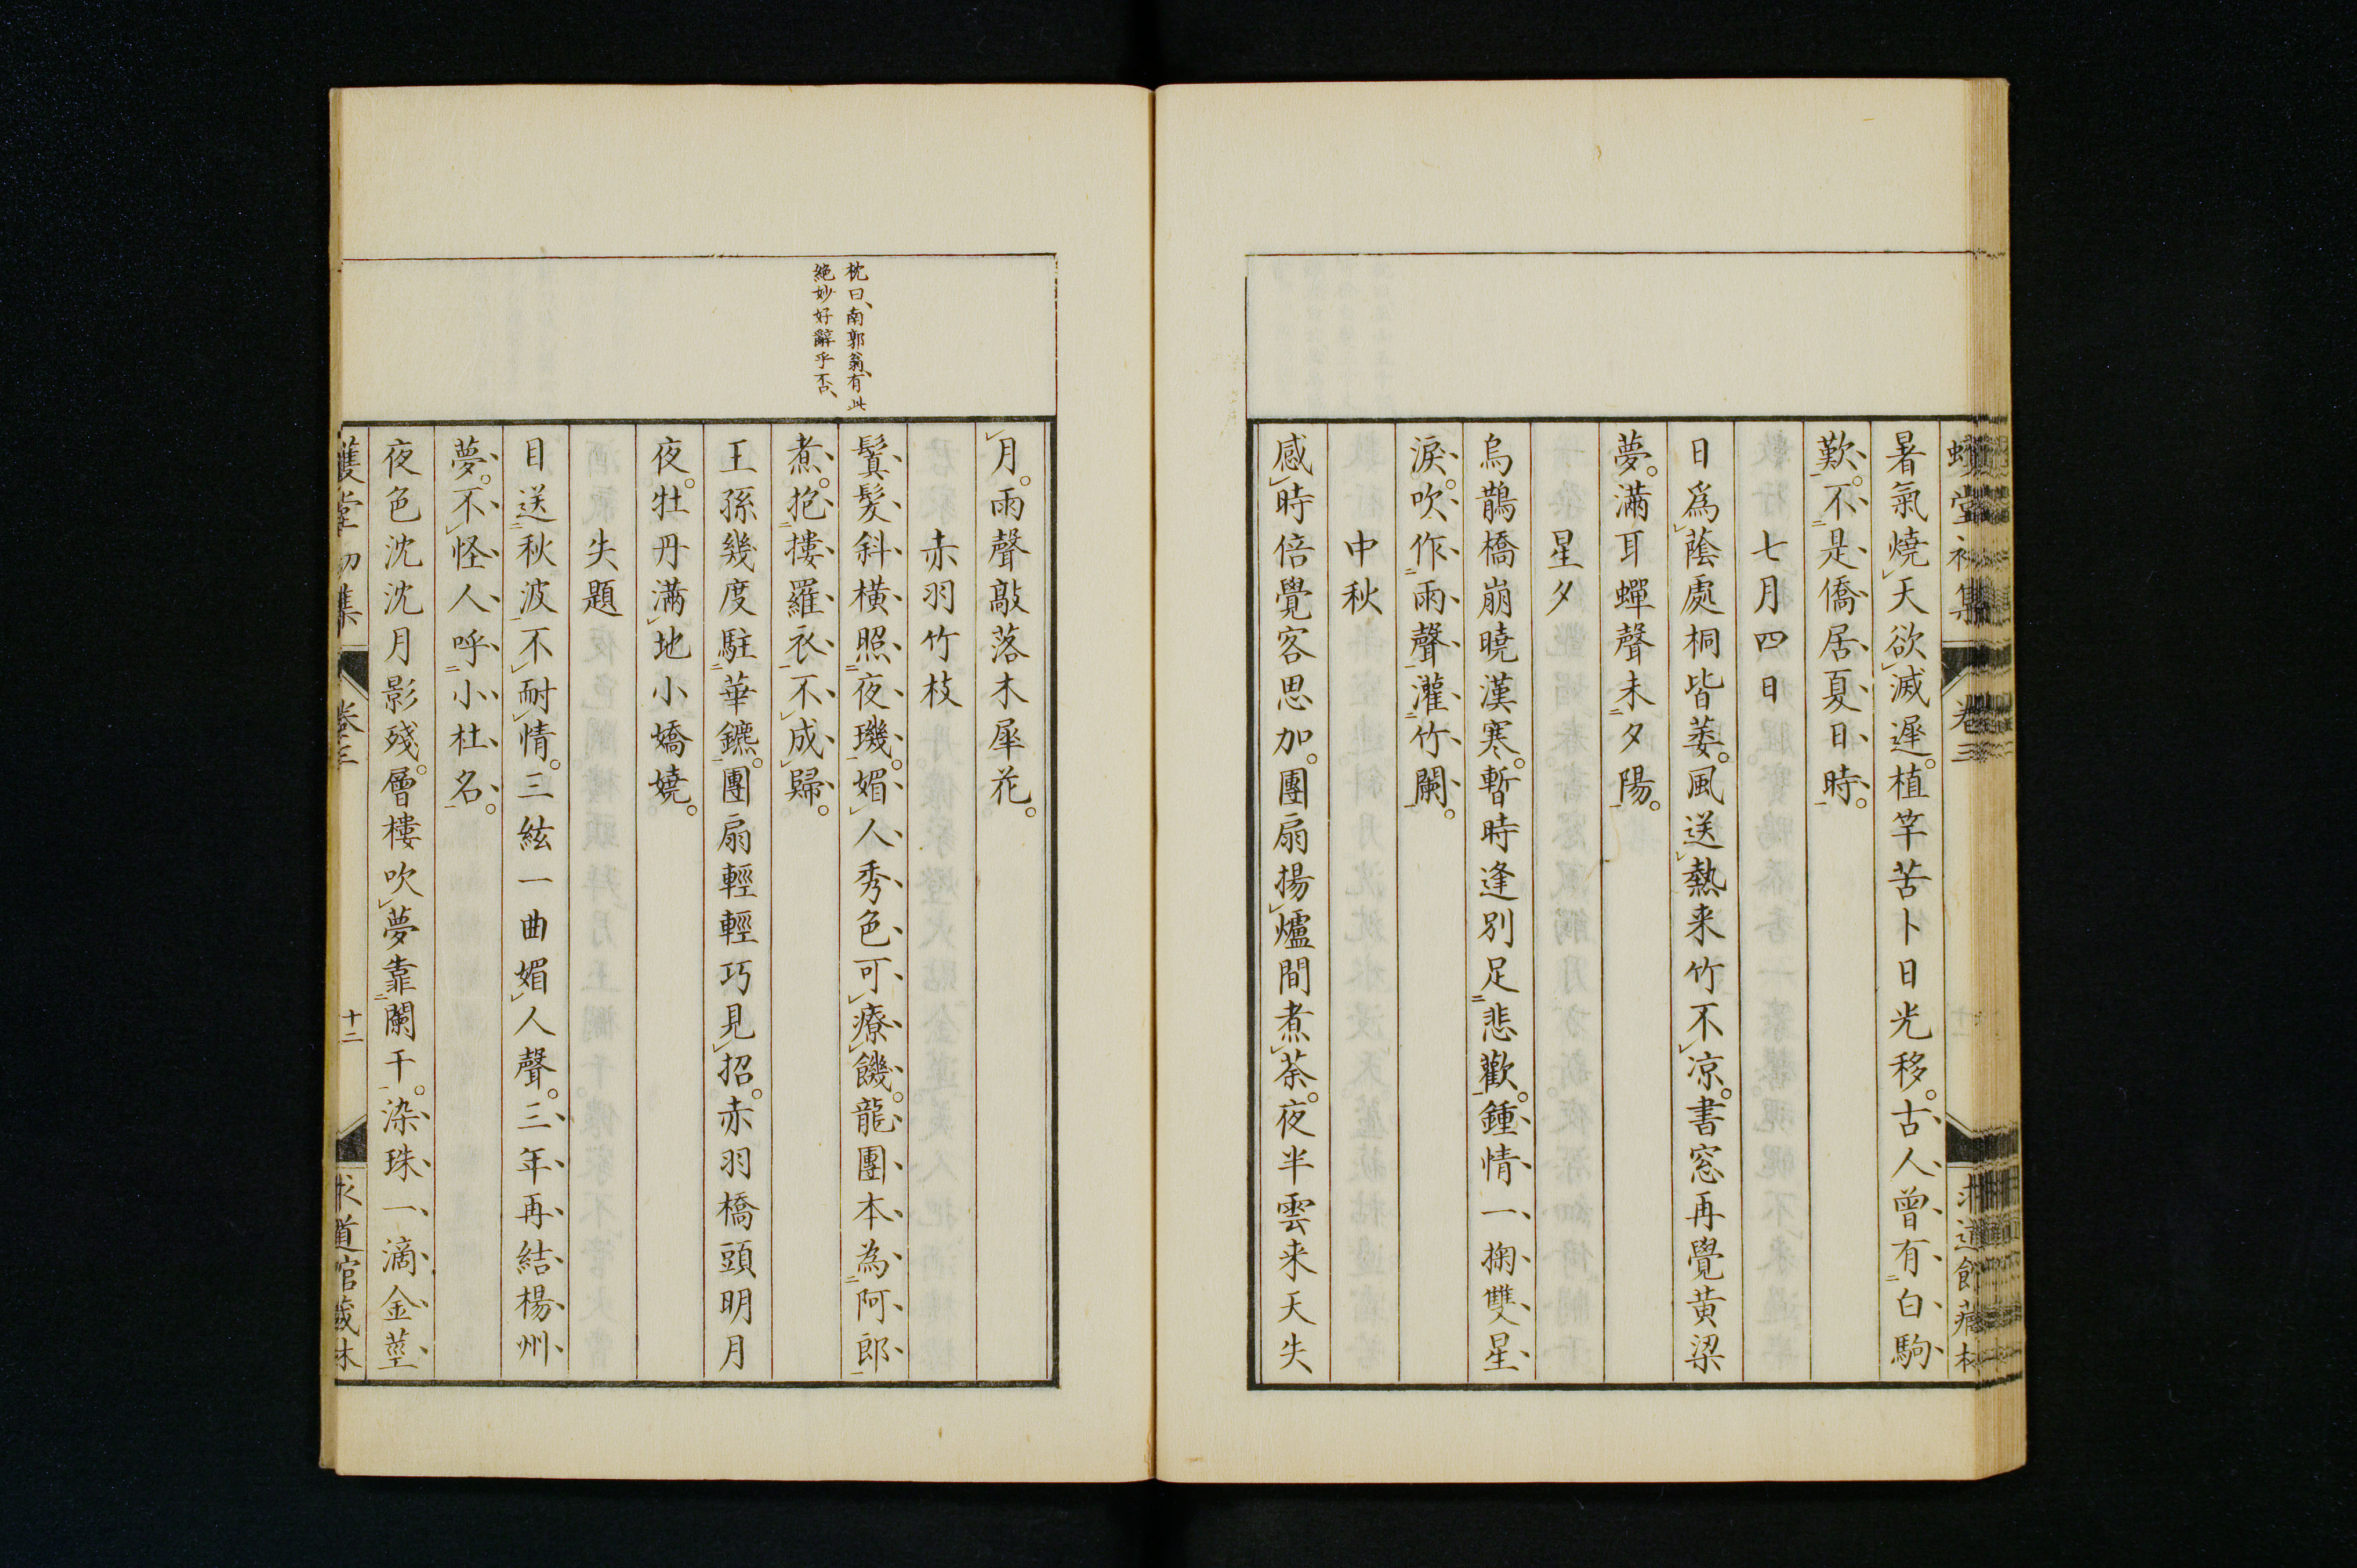 暑氣燒天欲滅遲。植竿苦卜日光移。古人曾有白駒
歎。不是僑居夏日時。
七月四日
日爲蔭處桐皆萎。風送熱来竹不涼。書窓再覺黄梁
夢。滿耳蟬聲未夕陽。
星夕
烏鵲橋崩曉漢寒。暫時逢別足悲歡。鍾情一掬雙星
淚。吹作雨聲灌竹闌。
中秋
感時倍覺客思加。團扇揚爐間煮茶。夜半雲来天失
枕曰、南郭翁、有此
絶妙好辭乎否、
月。雨聲敲落木犀花。
赤羽竹枝
鬒髮斜橫照夜璣。媚人秀色可療饑。龍團本為阿郎
煮。抱摟羅衣不成歸。
王孫幾度駐華鑣。團扇輕輕巧見招。赤羽橋頭明月
夜。牡丹滿地小嬌嬈。
失題
目送秋波不耐情。三絃一曲媚人聲。三年再結楊州
夢。不怪人呼小杜名。
夜色沈沈月影殘。層樓吹夢靠闌干。染珠一滴金莖
堂初集 卷三 十二 求道館藏本